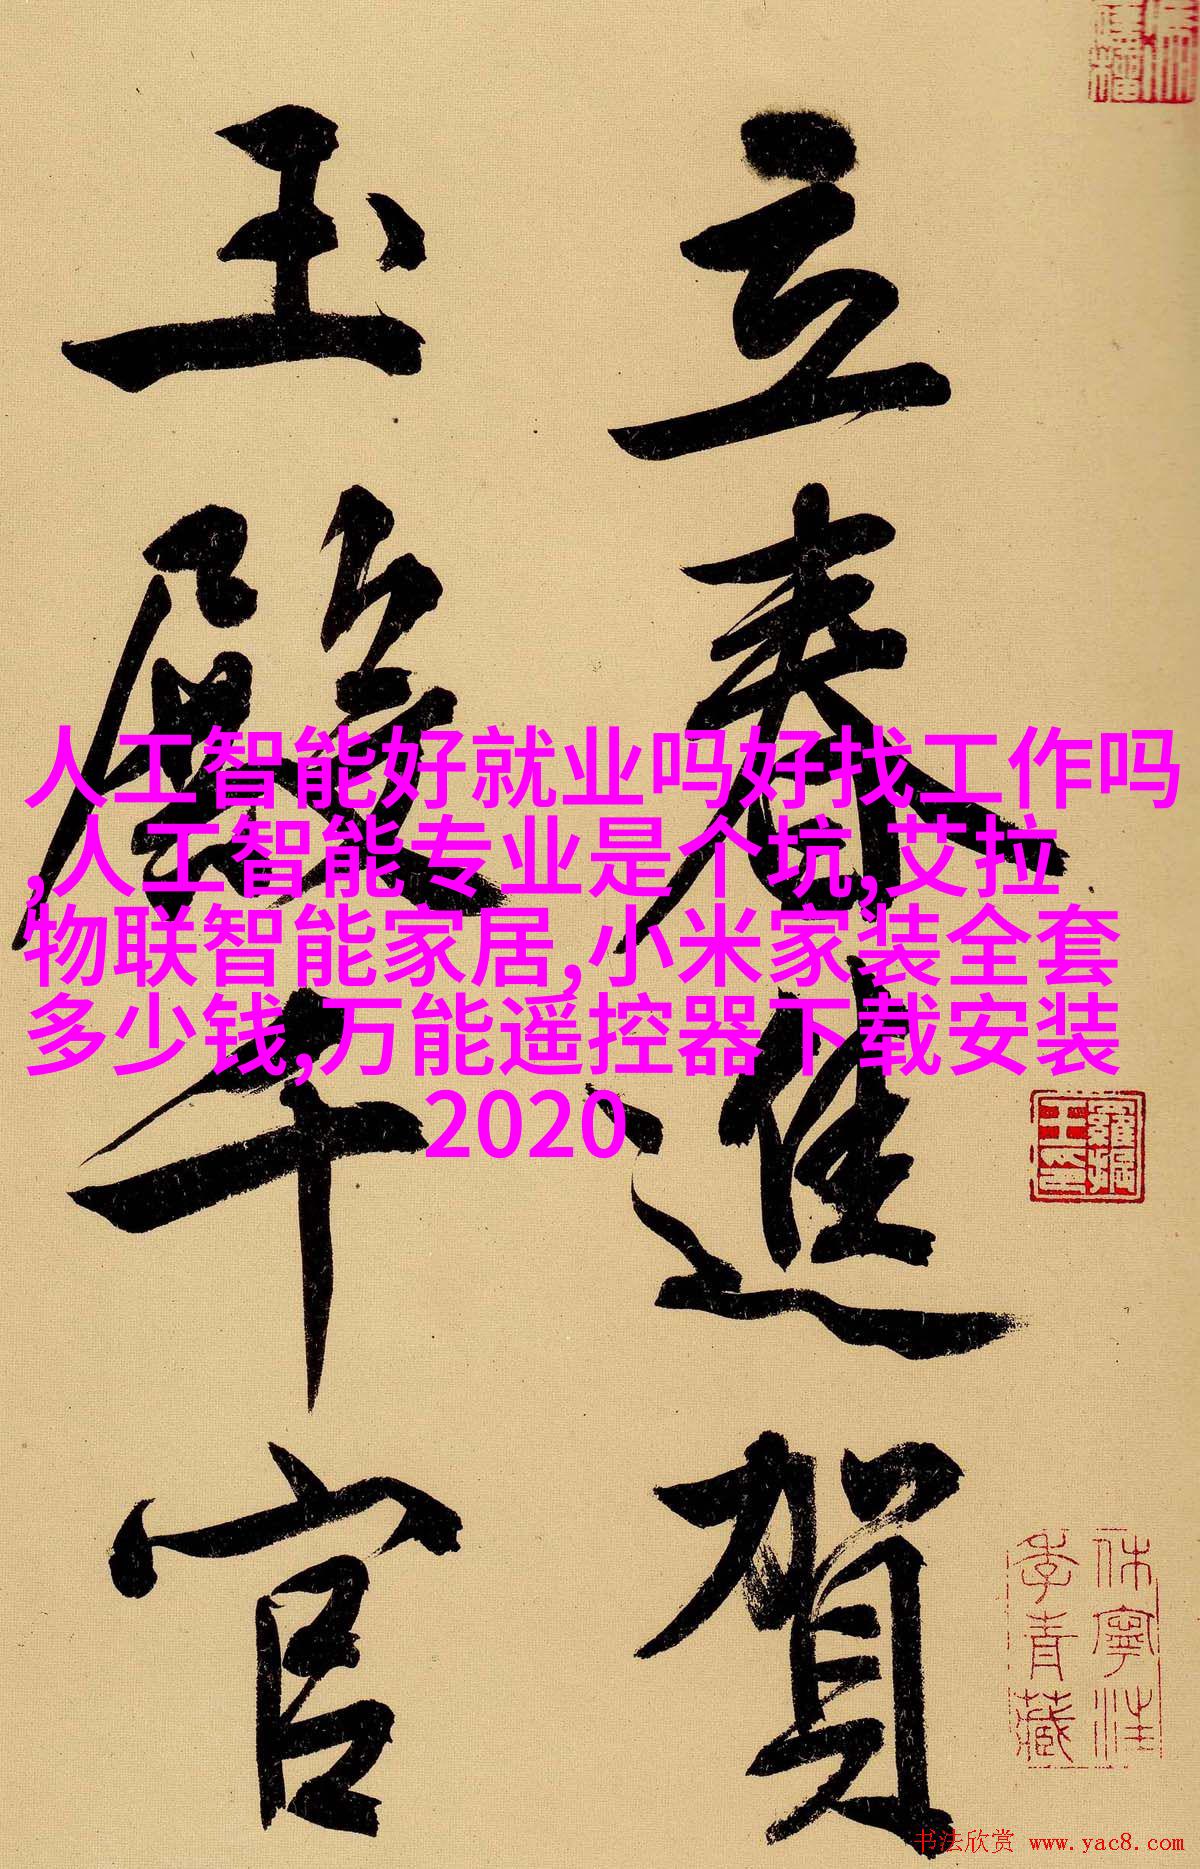 立春進賀
玉殿千官
人工智能好就业吗好找工作吗
,人工智能专业是个坑,艾拉
物联智能家居,小米家装全套
多少钱,万能遥控器下载安装
2020
休寧汪
季青藏
书法欣赏 www.yac8.com